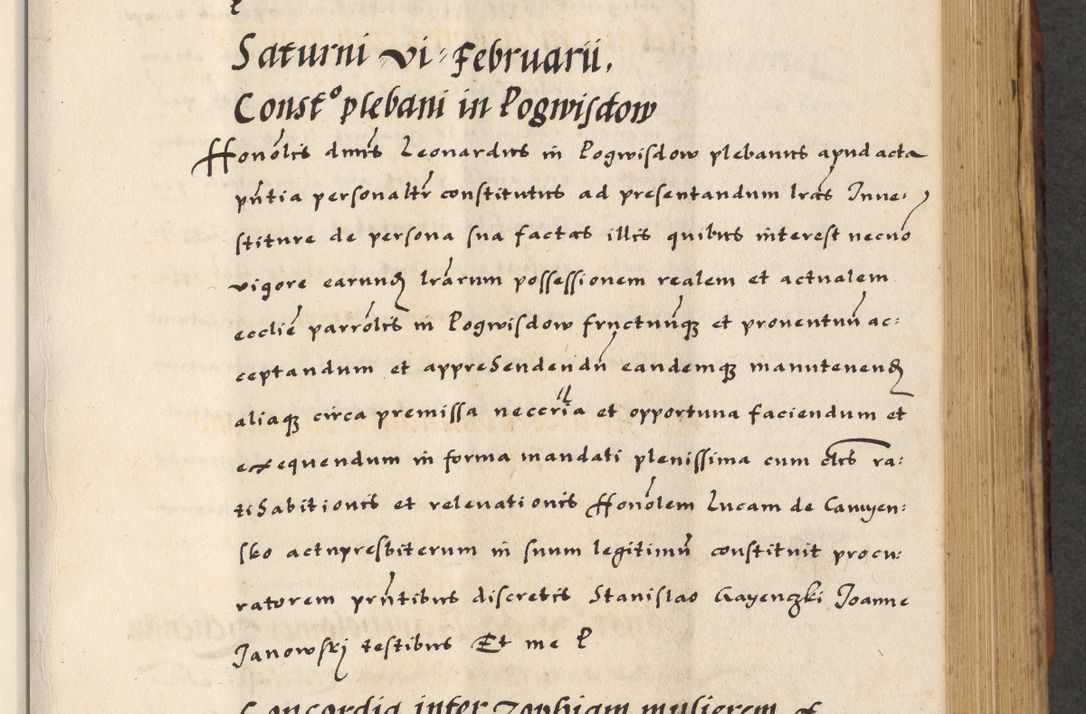 Saturni vi Februarii.
Constº plebani in Pogwisdow
Honolis dnus Leonardus in Pogwisdow plebanus apud acta
pntia personaltr constitutus ad presentandum lras Inve:
stiture de persona sua factas illis quibus interest necno
vigore earund lrarum possessionem realem et actualem
ecclie parrolis in Pogwisdow fructuunq et proventuu ac:
ceptandum et apprehendendu eandemq manutenend
aliaq circa premissa necceria et opportuna faciendum et
exequendum in forma mandati plenissima cum clis ra:
tihabitionis et relevationis Honolem Lucam de
sko actupresbiterum in suum legitimu constituit procu:
ratorem prntibus discretis Stanislao Gayenczki Joanne
Janowskj testibus Et me P
Concordia inter Zophiam mulierem et